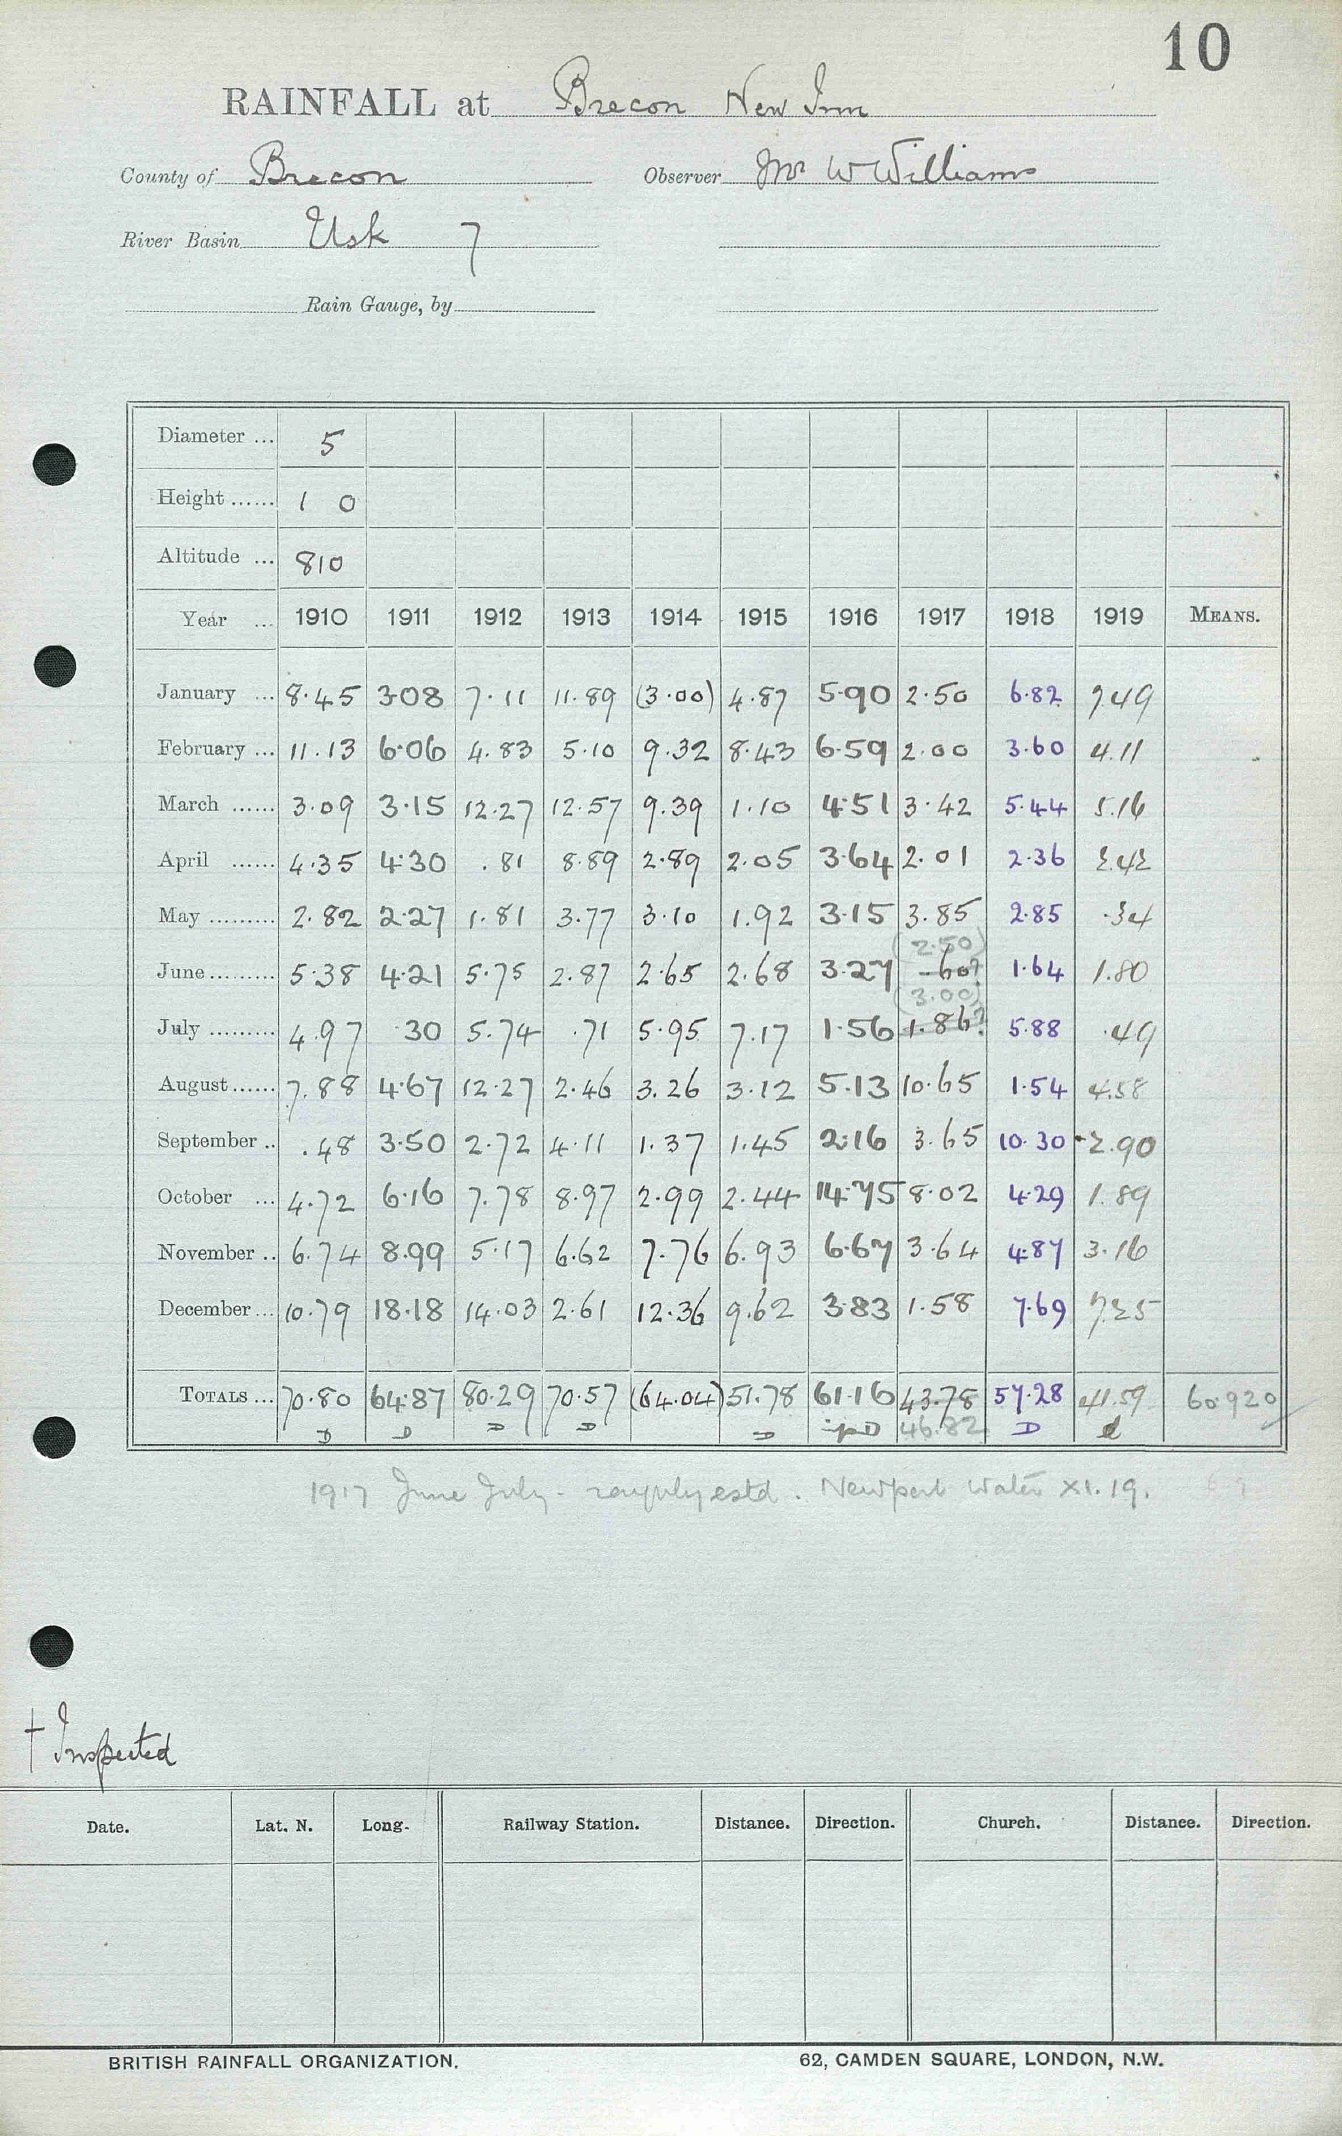 10
RAINFALL at Brecon New Inn
County of Brecon Observer Mr W Williams
River Basin Usk 7
Rain Gauge, by
Diameter ... 5
Height ...... 1 0
Altitude ... 810
Year ... 1910 1911 1912 1913 1914 1915 1916 1917 1918 1919 MEANS.
January ... 8.45 3.08 7.11 11.89 (3.00) 4.87 5.90 2.50 6.82 7.49
February ... 11.13 6.06 4.83 5.10 9.32 8.43 6.59 2.00 3.60 4.11
March ...... 3.09 3.15 12.27 12.57 9.39 1.10 4.51 3.42 5.44 5.16
April ...... 4.35 4.30 .81 8.89 2.89 2.05 3.64 2.01 2.36 2.42
May ......... 2.82 2.27 1.81 3.77 3.10 1.92 3.15 3.85 2.85 .34
(2.50)
June ......... 5.38 4.21 5.75 2.87 2.65 2.68 3.27 .60? 1.64 1.80
(3.00)
July ......... 4.97 .30 5.74 .71 5.95 7.17 1.56 1.86? 5.88 .49
August ...... 7.88 4.67 12.27 2.46 3.26 3.12 5.13 10.65 1.54 4.58
September .. .48 3.50 2.72 4.11 1.37 1.45 2.16 3.65 10.30 2.90
October ... 4.72 6.16 7.78 8.97 2.99 2.44 14.75 8.02 4.29 1.89
November .. 6.74 8.99 5.17 6.62 7.76 6.93 6.67 3.64 4.87 3.16
December ... 10.79 18.18 14.03 2.61 12.36 9.62 3.83 1.58 7.69 7.25
TOTALS ... 70.80 64.87 80.29 70.57 (64.04) 51.78 61.16 43.78 57.28 41.59 60.920
D D D D D D 46.82 D d
1917 June July - roughly estd. Newport Water XI.19.
† Inspected
Date. Lat. N. Long. Railway Station. Distance. Direction. Church. Distance. Direction.
BRITISH RAINFALL ORGANIZATION. 62, CAMDEN SQUARE, LONDON, N.W.